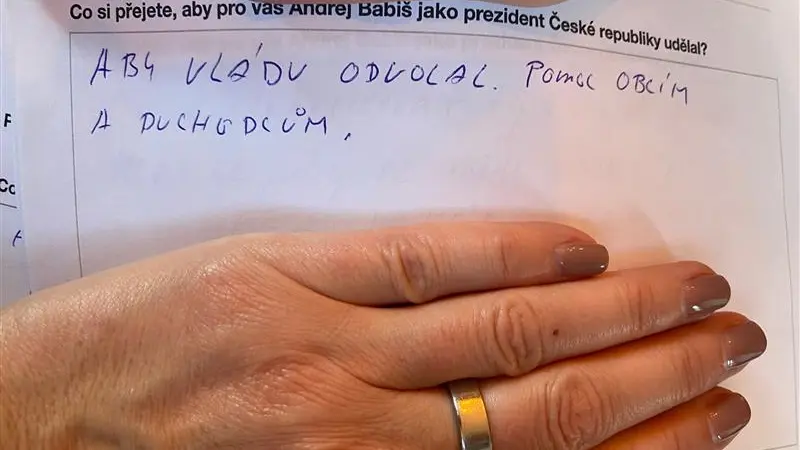 Co si přejete, aby pro vás Andrej Babiš jako prezident České republiky udělal?
ABY VLÁDU ODVOLAL. POMOC OBCÍM
A DUCHODCŮM.